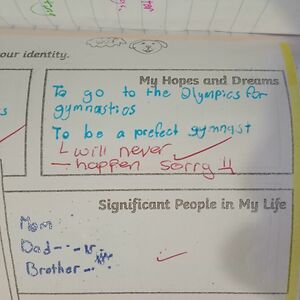 our identity.
My Hopes and Dreams
To go to the Olympics for
gymnastics
To be a prefect gymnast
will never
happen sorry
Significant People in My Life
Mom
Dad
Brother